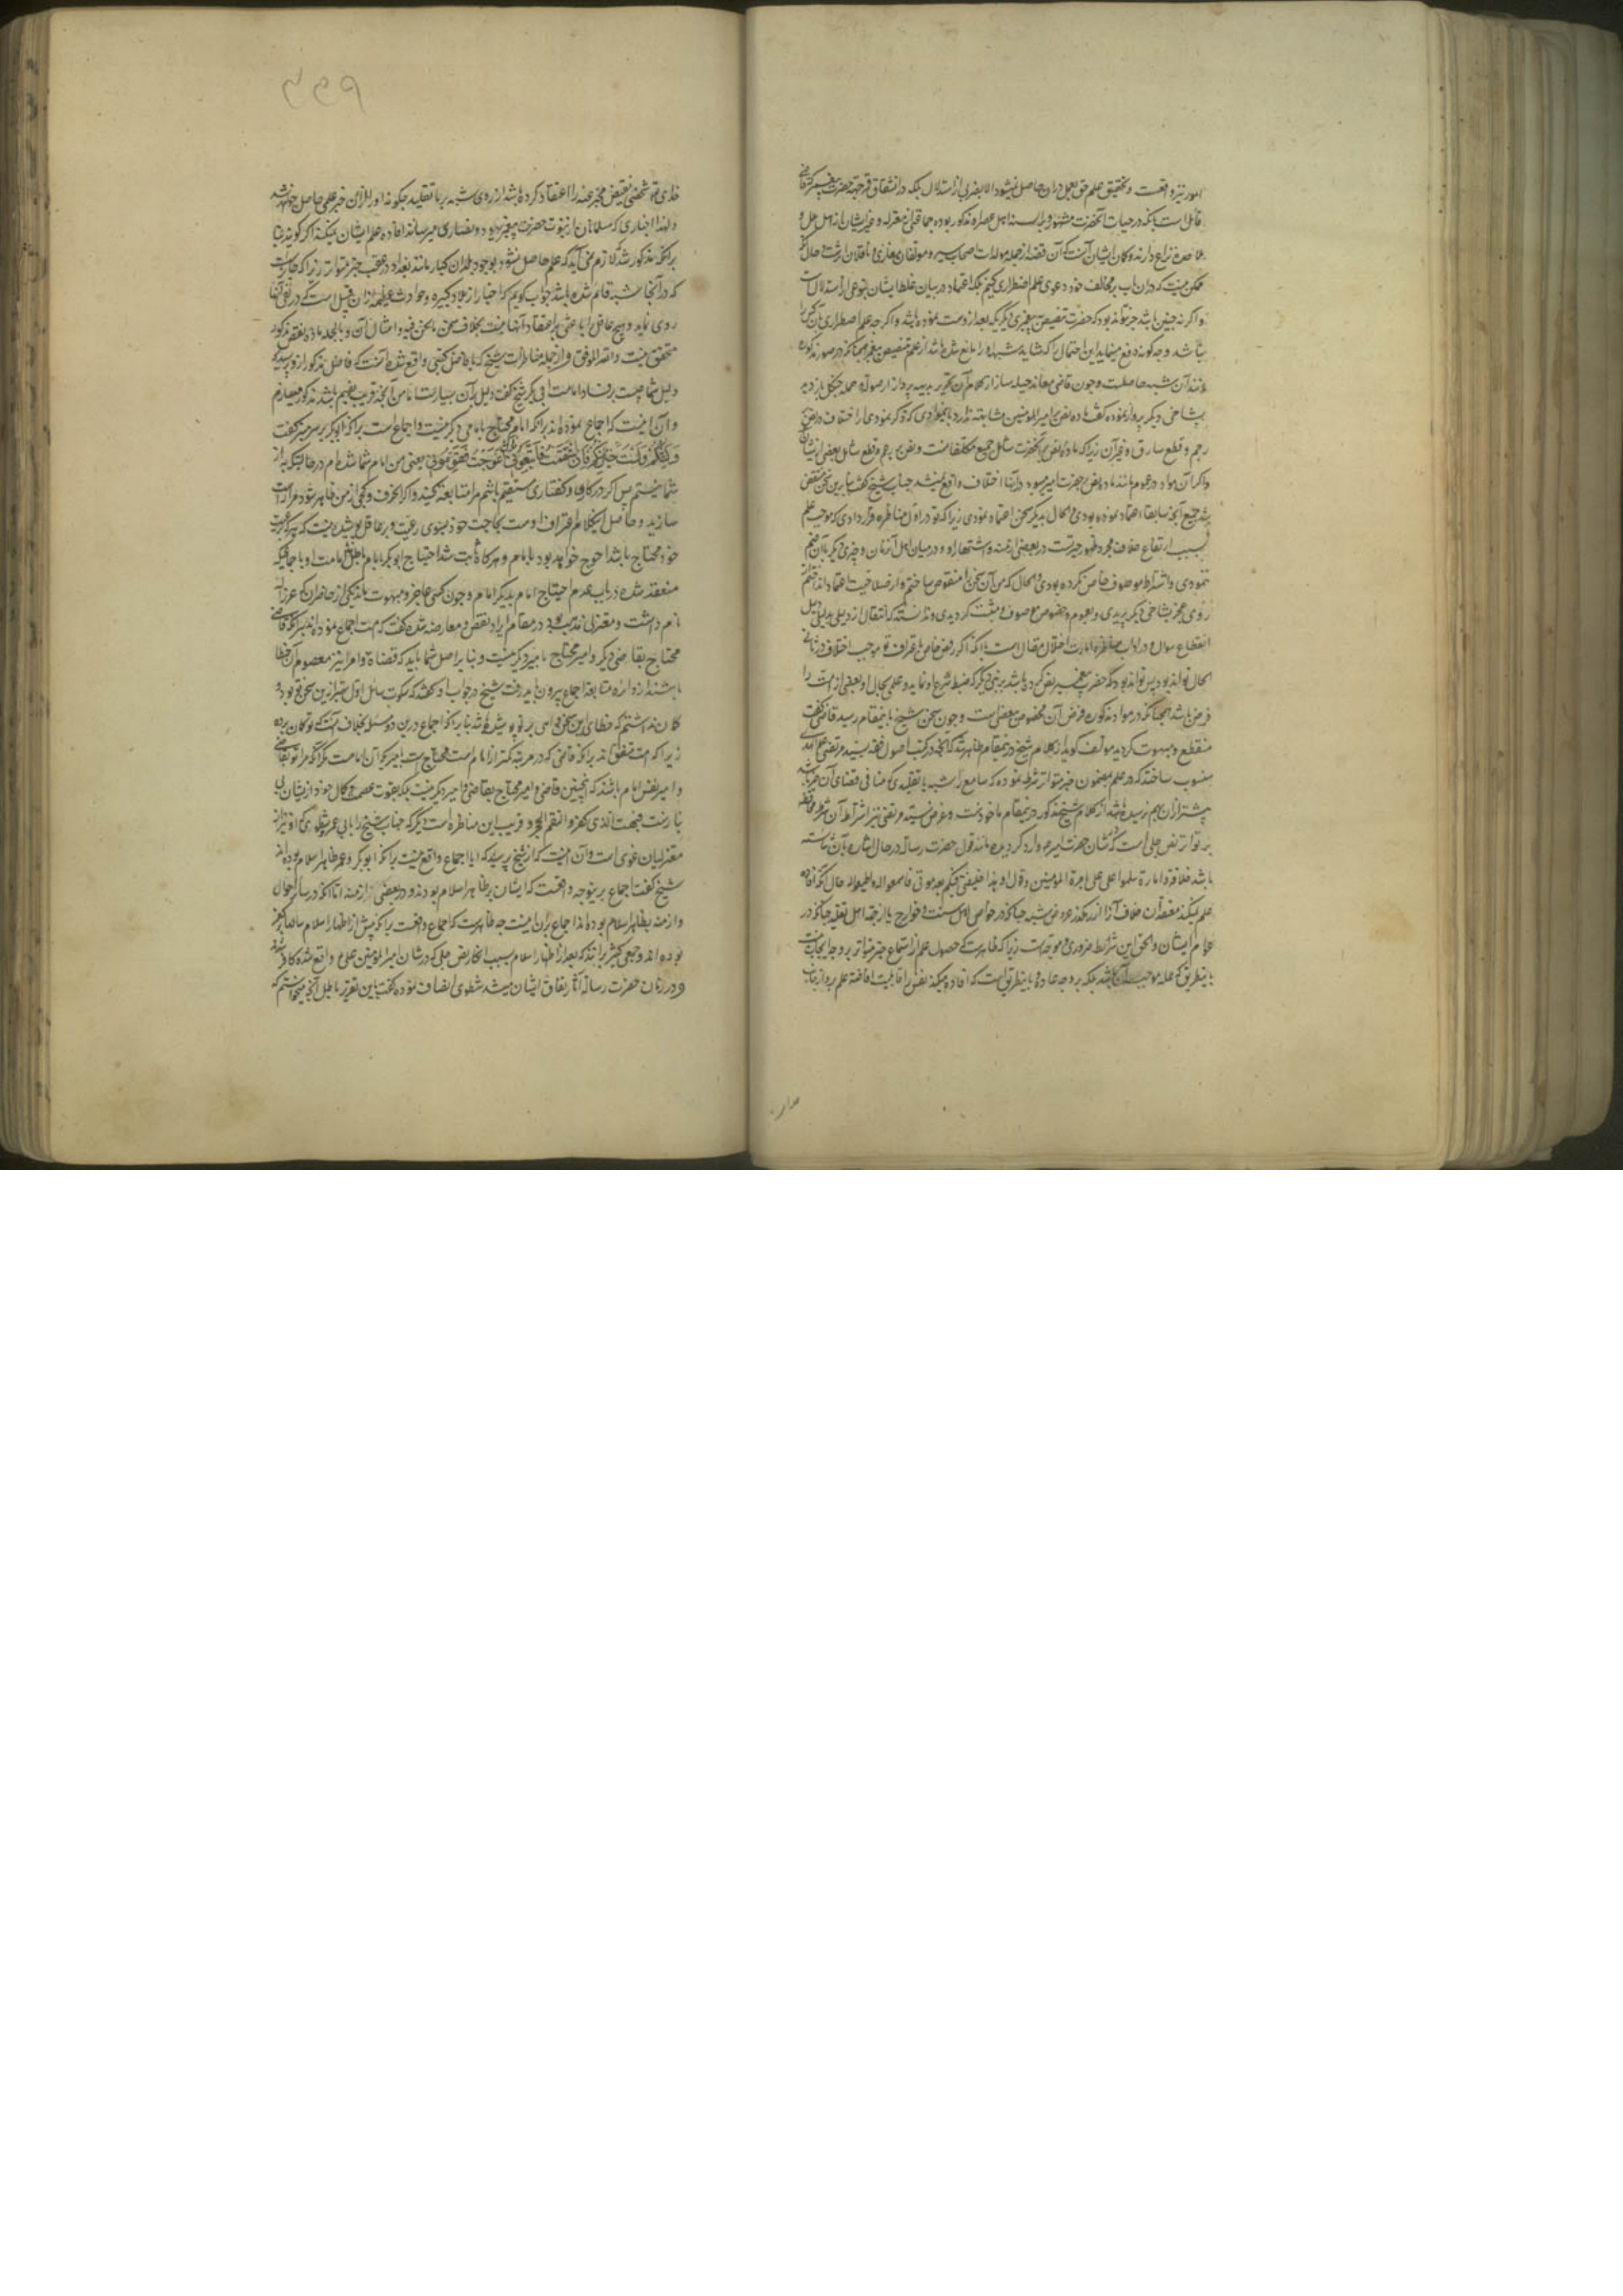 امور نیز واقعست و تحقیق علم حق بعمل دران حاصل نمیشود الا بضربی از استدلال بلکه در انشقاق قمر جهة حضرت پیغمبر که قاضی
قائل است بانکه در حیات آنحضرت مشهور بر السنه اهل عصر مذکور بوده جماعتی از معتزله و غیر ایشان از اهل ملل و
ملاحده نزاع دارند و کمان ایشان آنست که آن قصه از جمله مولدات اصحاب سیر و مولفان مغازی و ناقلان ارثست و حال آنکه
ممکن نیست که در ان باب بر مخالف خود دعوی علم اضطراری کنیم بلکه اعتماد در بیان غلط ایشان بنوعی از استدلال است
و اگر نه چنین باشد چرا نتواند بود که حضرت تنصیص پیغمبری دیگر که بعد از وست نموده باشد و اگر چه علم اضطراری بان کس را
نباشد و چه کونه دفع مینماید این احتمال را که شاید شبهه او را مانع شده باشد از علم تنصیص پیغمبر چنانکه در صور مذکوره
مانند آن شبه حاصلست و چون قاضی معاند حیله ساز از کلام آن نحریر بدیهه پرداز از صولت و حمله چنکل باز دید
بشاخی دیگر پرواز نموده گفت ماده نص امیر المؤمنین مشابهتی ندارد بانچه تو ذکر نمودی از اختلاف در نص
رجم و قطع سارق و غیر آن زیرا که ماده نص آنحضرت شامل جمیع مکلفانست و نص رجم و قطع شامل بعضی از ایشان
و اگر آن مواد در عموم مانند ماده نص حضرت امیر میبود در آنها اختلاف واقع نمیشد جناب شیخ گفت بنابرین سخن منتقض
شد جمیع آنچه سابقا اعتماد نموده بودی و الحال بدیگر سخن اعتماد نمودی زیرا که تو در اول مناظره قرار دادی که موجب علم
بسبب ارتفاع خلاف مجرد ظهور خبرست در بعضی ازمنه و اشتهار او در میان اهل آنزمان و چیزی دیگر بآن ضم
ننمودی و اشتراط موصوف خاص نکرده بودی و الحال که من آن سخن را منقوض ساختم و از صلاحیت اعتماد انداختم از
روی عجز بشاخی دیگر پریدی و بعموم و خصوص موصوف متشبث گردیدی و ندانستی که انتقال از دلیلی بدلیل
انقطاع سوال و در آداب مناظره امارت اختلال مقال است با آنکه اگر فرض خاص باعتراف تو موجب اختلاف در ثانی
الحال تواند بود پس تواند بود که حضرت پیغمبر نص کرده باشد بر نبی دیگر که ضبط شرع او نماید و علم بحال او بعضی از امت را
فرض باشد همچنانکه در مواد مذکوره فرض آن مخصوص ببعضی است و چون سخن شیخ باینمقام رسید قاضی گفت
منقطع و مبهوت گردید مولف گوید از کلام شیخ در نمقام ظاهر شد که آنچه در کتب اصول فقه بسید مرتضی علم الهدی
منسوب ساخته که در علم بمضمون خبر متواتر شرط نموده که سامع را شبه یا تقلیدی که منافی اقتضای آن خبر باشد
پیشتر از آن بهم نرسیده باشد از کلام شیخ مذکور در نمقام ماخوذست و غرض سید مرتضی نیز اشتراط آن شرط محافظه
بر تواتر نص جلی است که در شان حضرت امیر وارد گردیده مانند قول حضرت رسالت در حال اشاره بآن شایسته
باشد خلافة و امارة سلموا علی علی بامرة المؤمنین و قال و هذا خلیفتی فیکم بعد موتی فاسمعوا له و اطیعوا له حال آنکه افاده
علم نمیکند معتقدان خلاف آنرا از رهگذر عروض شبه چنانکه در خواص اهل سنت و خوارج یا از جهة اهل تقلید چنانکه در
عوام ایشان و الحق این شرایط ضروری و موجهات زیرا که ظاهرست که حصول علم از استماع خبر متواتر بر وجه ایجاب نیست
باینطریق که علت موجب آن باشد بلکه بر وجه عادة باینطریق است که افاده میکند نفس را قابلیت افاضه علم بر او از جانب
مدار
۴۴۹
خدای تعالی شخصی نقیض مخبر عنه را اعتقاد کرده باشد از روی شبه یا تقلید چکونه او را از آن خبر علمی حاصل خواهد شد
و لهذا اخباری که مسلمانان از نبوت حضرت پیغمبر بیهود و نصاری میرسانند افاده علم ایشان نمیکند اگر گویند بنا
بر آنچه مذکور شد لازم می آید که علم حاصل نشود بوجود بلدان کبار مانند بغداد در عقب خبر متواتر زیرا که جایزست
که در آنجا شبه قائم شده باشد جواب گویم که اخبار از بلاد کبیره و حوادث عظیمه از آن قبیل است که در نفی آنها
روی نماید و هیچ عاقل را باعثی بر اعتقاد آنها نیست بخلاف سخن ما نحن فیه و امثال آن و بالجمله ماده نقض مذکور
متحقق نیست و الله الموفق و از جمله مناظرات شیخ که با فاضل کتبی واقع شده آنست که فاضل مذکور از و پرسید که
دلیل شما چیست بر فساد امامت ابی بکر شیخ گفت دلیل بر آن بسیار است اما من آنچه قریب بفهم باشد مذکور میسازم
و آن اینست که اجماع نموده اند بر آنکه امام محتاج بامامی دیگر نیست و اجماع است بر آنکه ابوبکر بر سر منبر گفت
وَلِیتُکُم وَلَستُ بِخَیرِکُم فَاِن استَقَمتُ فَاتَّبِعُونی وَاِن اعوَجَجتُ فَقَوِّمُونی یعنی من امام شما شده ام در حالتیکه به از
شما نیستم پس اگر در کار و گفتاری مستقیم باشم مرا متابعت کنید و اگر انحراف و کجی از من ظاهر شود مرا راست
سازید و حاصل اینکلام اعتراف اوست بحاجت خود بسوی رعیت و بر عاقل پوشیده نیست که هر که برعیت
خود محتاج باشد احوج خواهد بود بامام و هر گاه ثابت شد احتیاج ابوبکر بامام باطل شد امامت او باجماعیکه
منعقد شده در باب عدم احتیاج امام بدیگر امام و چون کتبی عاجز و مبهوت ماند یکی از حاضران که عرزاله
نام داشت و معتزلی مذهب بود در مقام ایراد نقض و معارضه شده گفت که امت اجماع نموده اند بر آنکه قاضی
محتاج بقاضی دیگر و امیر محتاج بامیر دیگر نیست و بنا بر اصل شما باید که قضاة و امرا نیز معصوم از خطا
باشند از دایره متابعة اجماع بیرون باید رفت شیخ در جواب او گفت که سکوت سائل اول بهتر ازین سخن تو بود و
گمان نداشتم که خطای این سخن واهی بر تو پوشیده باشد بنا بر آنکه اجماع درین دو مسئله بخلاف آنست که تو گمان برده
زیرا که امت متفق اند بر آنکه قاضی که در مرتبه کمتر از امام است محتاج است بامیر که آن امامست مگر آنکه مراد تو بقاضی
و امیر نفس امام باشد که اینچنین قاضی و امیر محتاج بقاضی و امیر دیگر نیست بلکه بقوت عصمت و کمال خود از ایشان بی
نیازست فبهت الذی کفر و التقم الحجر و قریب باین مناظره است دیگر که جناب شیخ را با ابی عمرو شطوی که او نیز از
معتزلیان غوی است و آن اینست که از شیخ پرسید که ایا اجماع واقع نیست بر آنکه ابوبکر و عمر ظاهر اسلام بوده اند
شیخ گفت اجماع بر ینوجه واقعست که ایشان بر ظاهر اسلام بودند در بعضی از ازمنه اما آنکه در سایر احوال
و ازمنه بظاهر اسلام بوده اند اجماع بر ان نیست چه ظاهرست که اجماع واقعست بر آنکه پیش از اظهار اسلام سالها بر کفر
بوده اند و جمعی کثیر بر انند که بعد از اظهار اسلام بسبب انکار نص جلی که در شان امیر المؤمنین علی واقع شده کافر شدند
و در زمان حضرت رسالت آثار نفاق ایشان میشد شطوی انصاف نموده گفت باین تقریر باطل آنچه میخواستم که